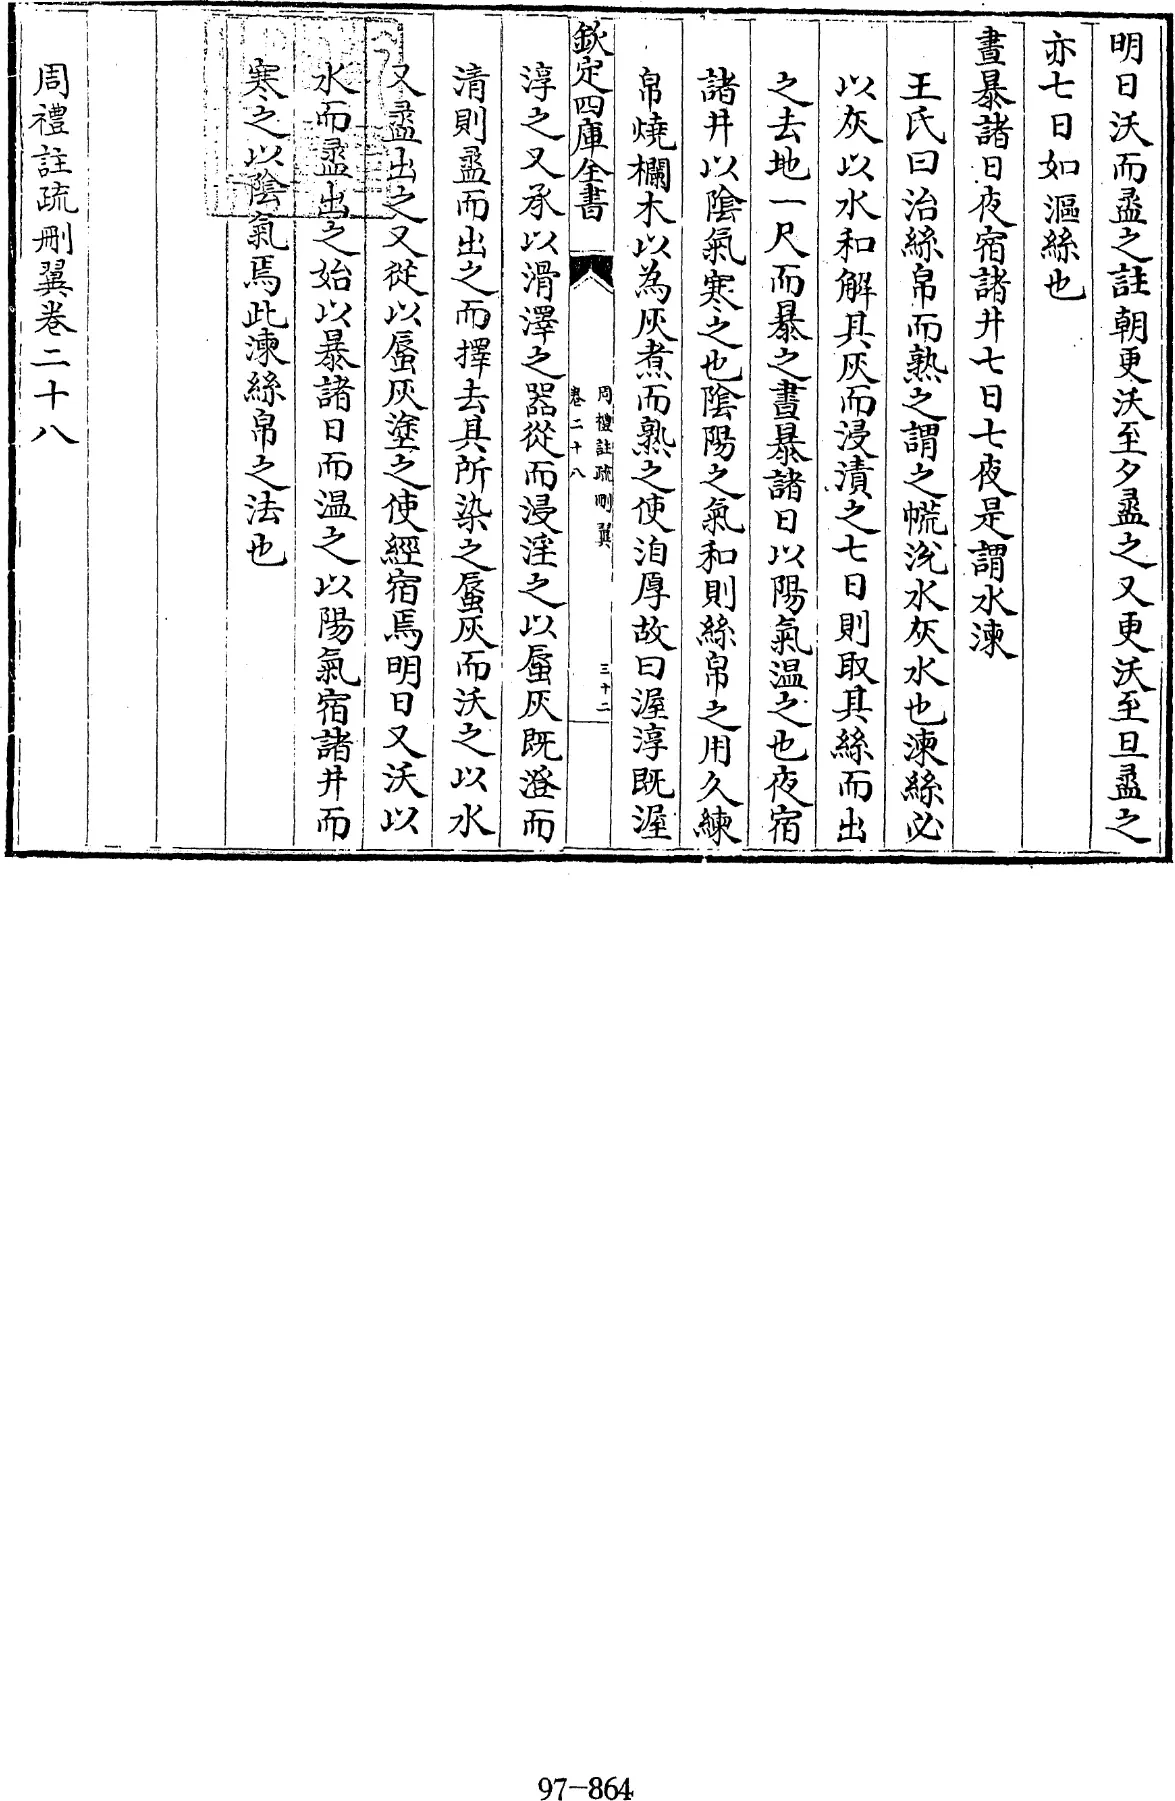 明日沃而盝之註朝更沃至夕盝之又更沃至旦盝之
亦七日如漚絲也
晝暴諸日夜宿諸井七日七夜是謂水湅
王氏曰治絲帛而熟之謂之㡆涚水灰水也湅絲必
以灰以水和解其灰而浸漬之七日則取其絲而出
之去地一尺而暴之晝暴諸日以陽氣温之也夜宿
諸井以隂氣寒之也隂陽之氣和則絲帛之用久練
帛燒欄木以為灰煮而熟之使洎厚故曰渥淳既渥
欽定四庫全書
周禮註疏刪翼
卷二十八
三十二
淳之又承以滑澤之器從而浸淫之以蜃灰既澄而
清則盝而出之而擇去其所染之蜃灰而沃之以水
又盝出之又從以蜃灰塗之使經宿焉明日又沃以
水而盝出之始以暴諸日而温之以陽氣宿諸井而
寒之以隂氣焉此湅絲帛之法也
周禮註疏刪翼卷二十八
97-864